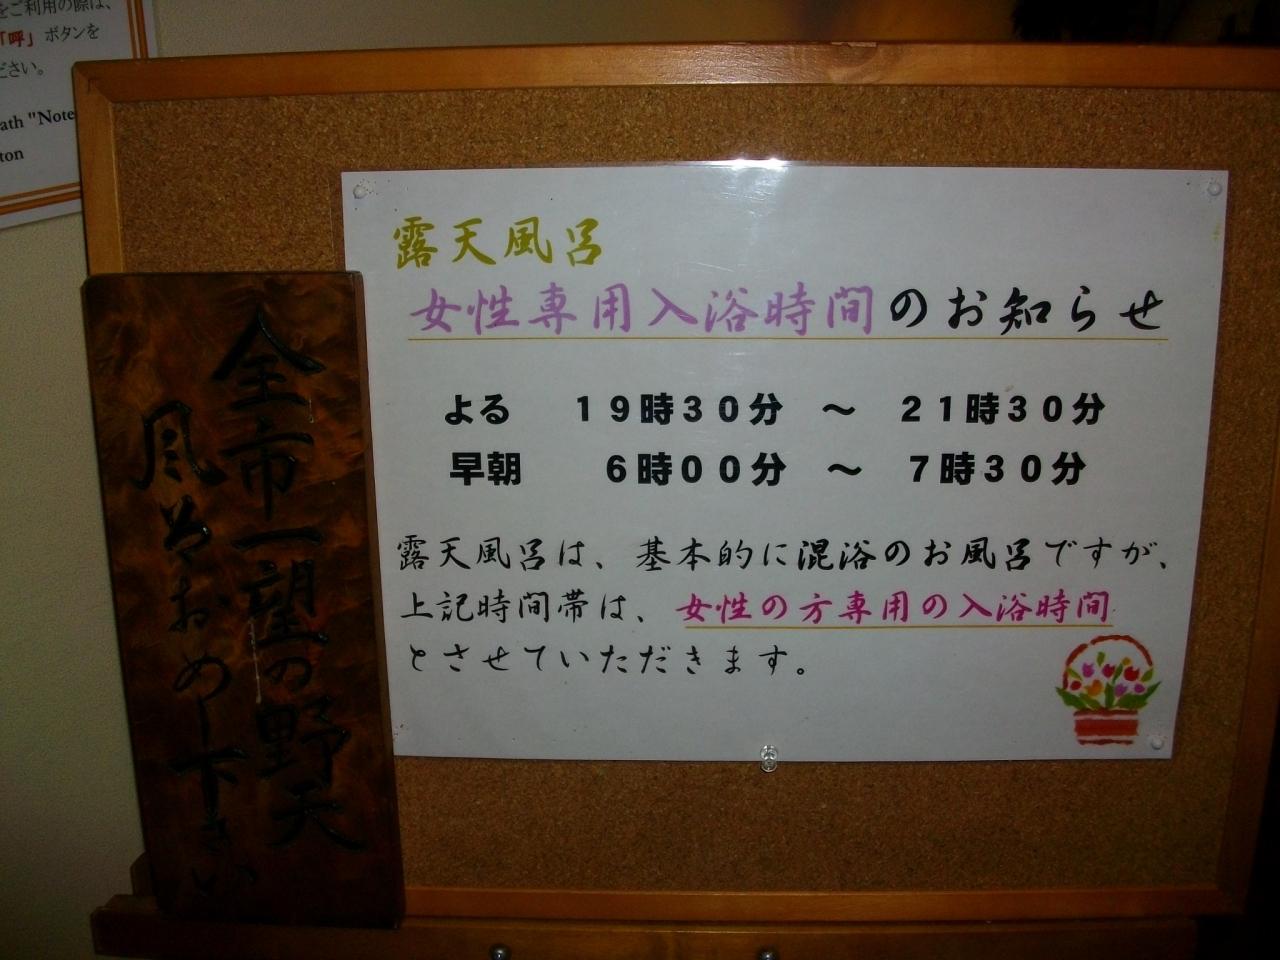 をご利用の際は、
「呼」ボタンを
ださい。
ath "Note
ton
露天風呂
女性専用入浴時間のお知らせ
よる 19時30分 ～ 21時30分
早朝 6時00分 ～ 7時30分
露天風呂は、基本的に混浴のお風呂ですが、
上記時間帯は、女性の方専用の入浴時間
とさせていただきます。
全市一望の野天
風呂おすすめ下さい